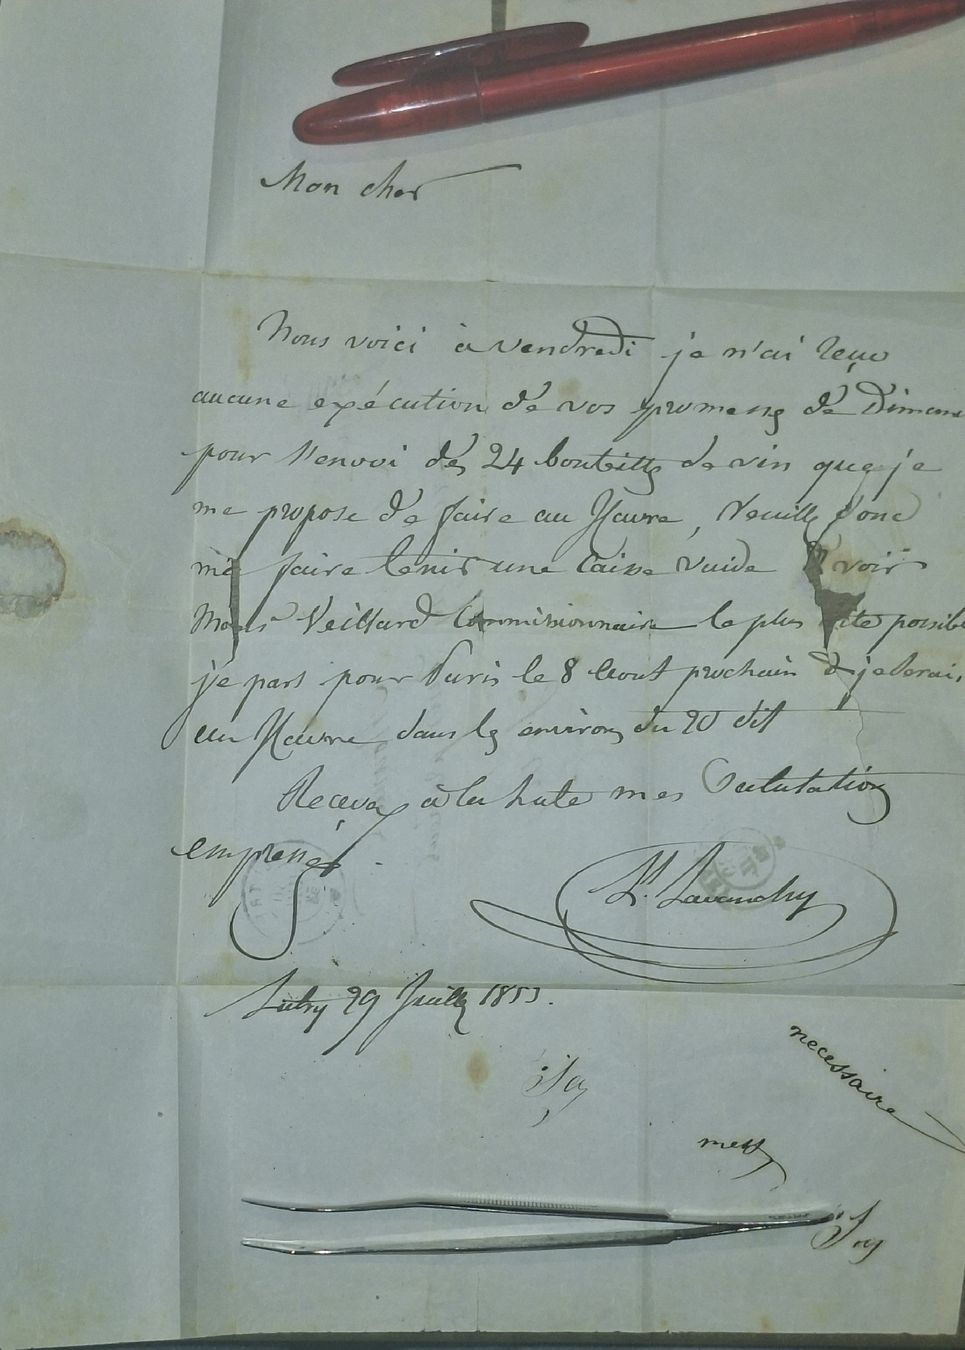 Mon cher
Nous voici à vendredi je n'ai reçu
aucune exécution de vos promesses de Dimanc
pour l'envoi des 24 bouteilles de vin que je
me propose de faire au Havre, Veuillez donc
me faire tenir une Caisse vuide voir
Veillard Commissionnaire le plus vite possib
je pars pour Paris le 8 Aout prochain & je serai
au Havre dans les environs du 20 dit
Recevez à la hate mes Salutations
empressées
Lutry 29 Juillet 1853.
necessaire